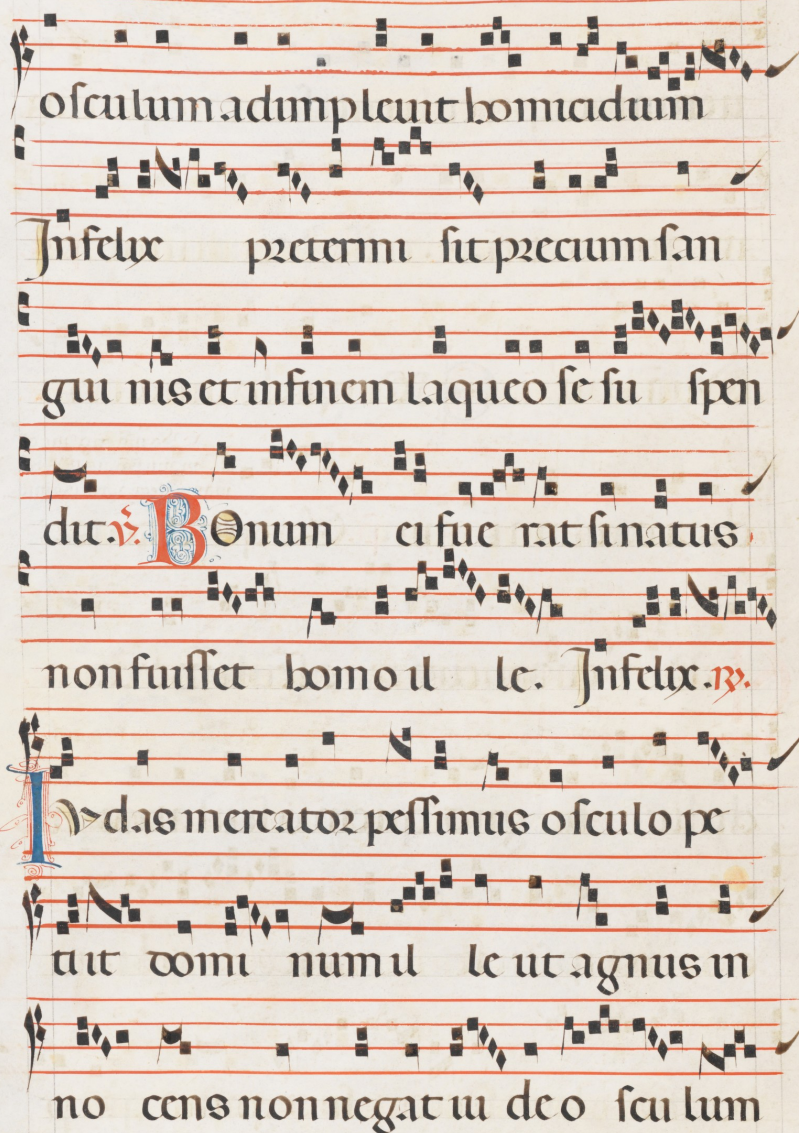 osculum adimplevit homicidium
Infelix pretermi sit precium san
gui nis et in finem laqueo se su spen
dit. V. Bonum ei fue rat si natus
non fuisset homo il le. Infelix. R.
Iudas mercator pessimus osculo pe
tiit domi num il le ut agnus in
no cens non negat iu de o scu lum